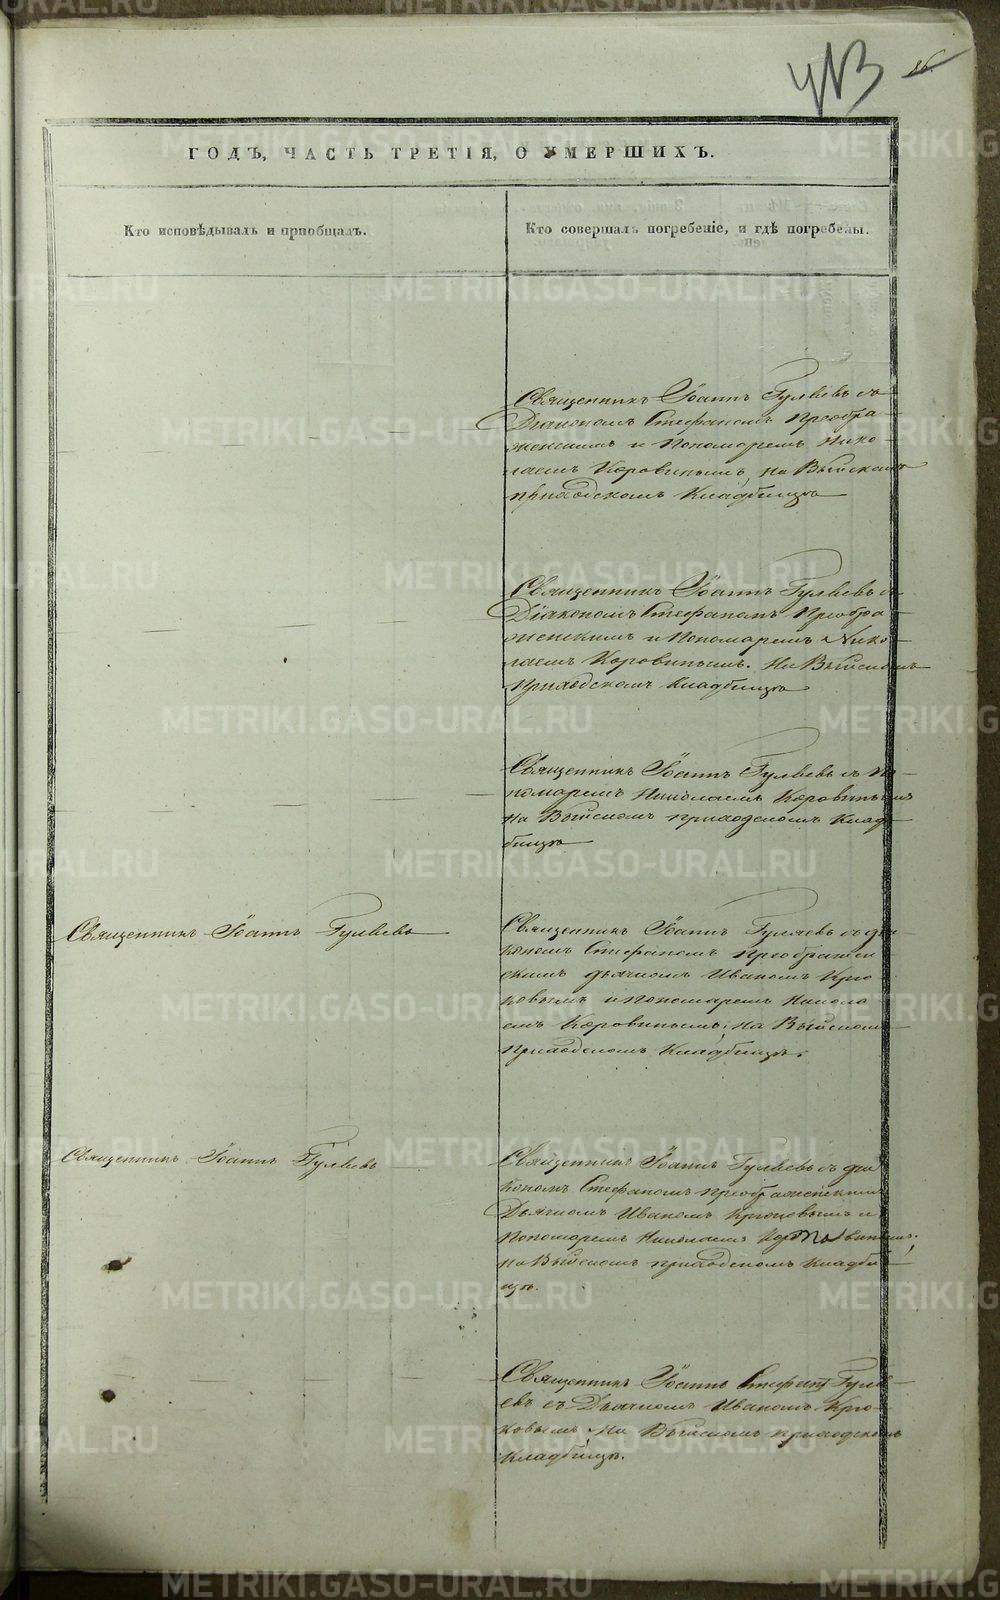 METRIKI.GASO-URAL.RU
чпз 86.
ГОДЪ, ЧАСТЬ ТРЕТІЯ, О УМЕРШИХЪ.
Кто исповѣдывалъ и пріобщалъ.
Кто совершалъ погребеніе, и гдѣ погребены.
Священникъ Іоаннъ Гуляевъ съ
Діакономъ Стефаномъ Преобра-
женскимъ и Пономаремъ Нико-
лаемъ Коровинымъ, на Выйскомъ
приходскомъ Кладбищѣ
Священникъ Іоаннъ Гуляевъ съ
Діакономъ Стефаномъ Преобра-
женскимъ и Пономаремъ Нико-
лаемъ Коровинымъ. На Выйскомъ
Приходскомъ Кладбищѣ
Священникъ Іоаннъ Гуляевъ съ По-
номаремъ Николаемъ Коровинымъ
на Выйскомъ приходскомъ Клад-
бищѣ
Священникъ Іоаннъ Гуляевъ
Священникъ Іоаннъ Гуляевъ съ діа-
кономъ Стефаномъ Преображен
скимъ дьячкомъ Иваномъ Крю
ковымъ и Пономаремъ Никола
емъ Коровинымъ; на Выйскомъ
Приходскомъ Кладбищѣ.
Священникъ Іоаннъ Гуляевъ
Священникъ Іоаннъ Гуляевъ съ діа
кономъ Стефаномъ Преображенскимъ
Дьячкомъ Иваномъ и
Пономаремъ Николаемъ
на Выйскомъ приходскомъ Кладби
щѣ.
Священникъ Іоаннъ Стефан Гуля-
евъ съ Дьячкомъ Иваномъ Крю-
ковымъ, На Выйскомъ приходскомъ
Кладбищѣ.